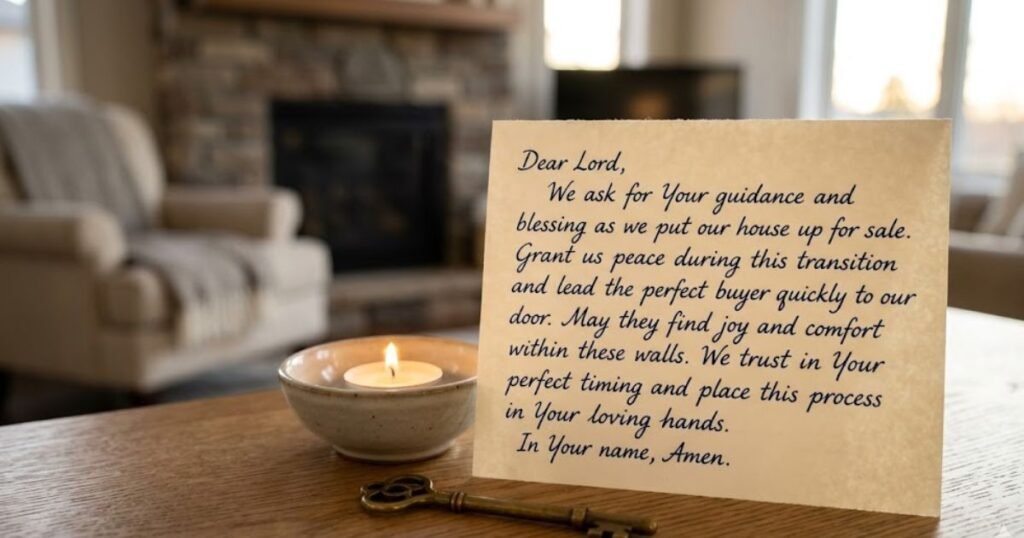 Dear Lord,
We ask for Your guidance and
blessing as we put our house up for sale.
Grant us peace during this transition
and lead the perfect buyer quickly to our
door. May they find joy and comfort
within these walls. We trust in Your
perfect timing and place this process
in Your loving hands.
In Your name, Amen.